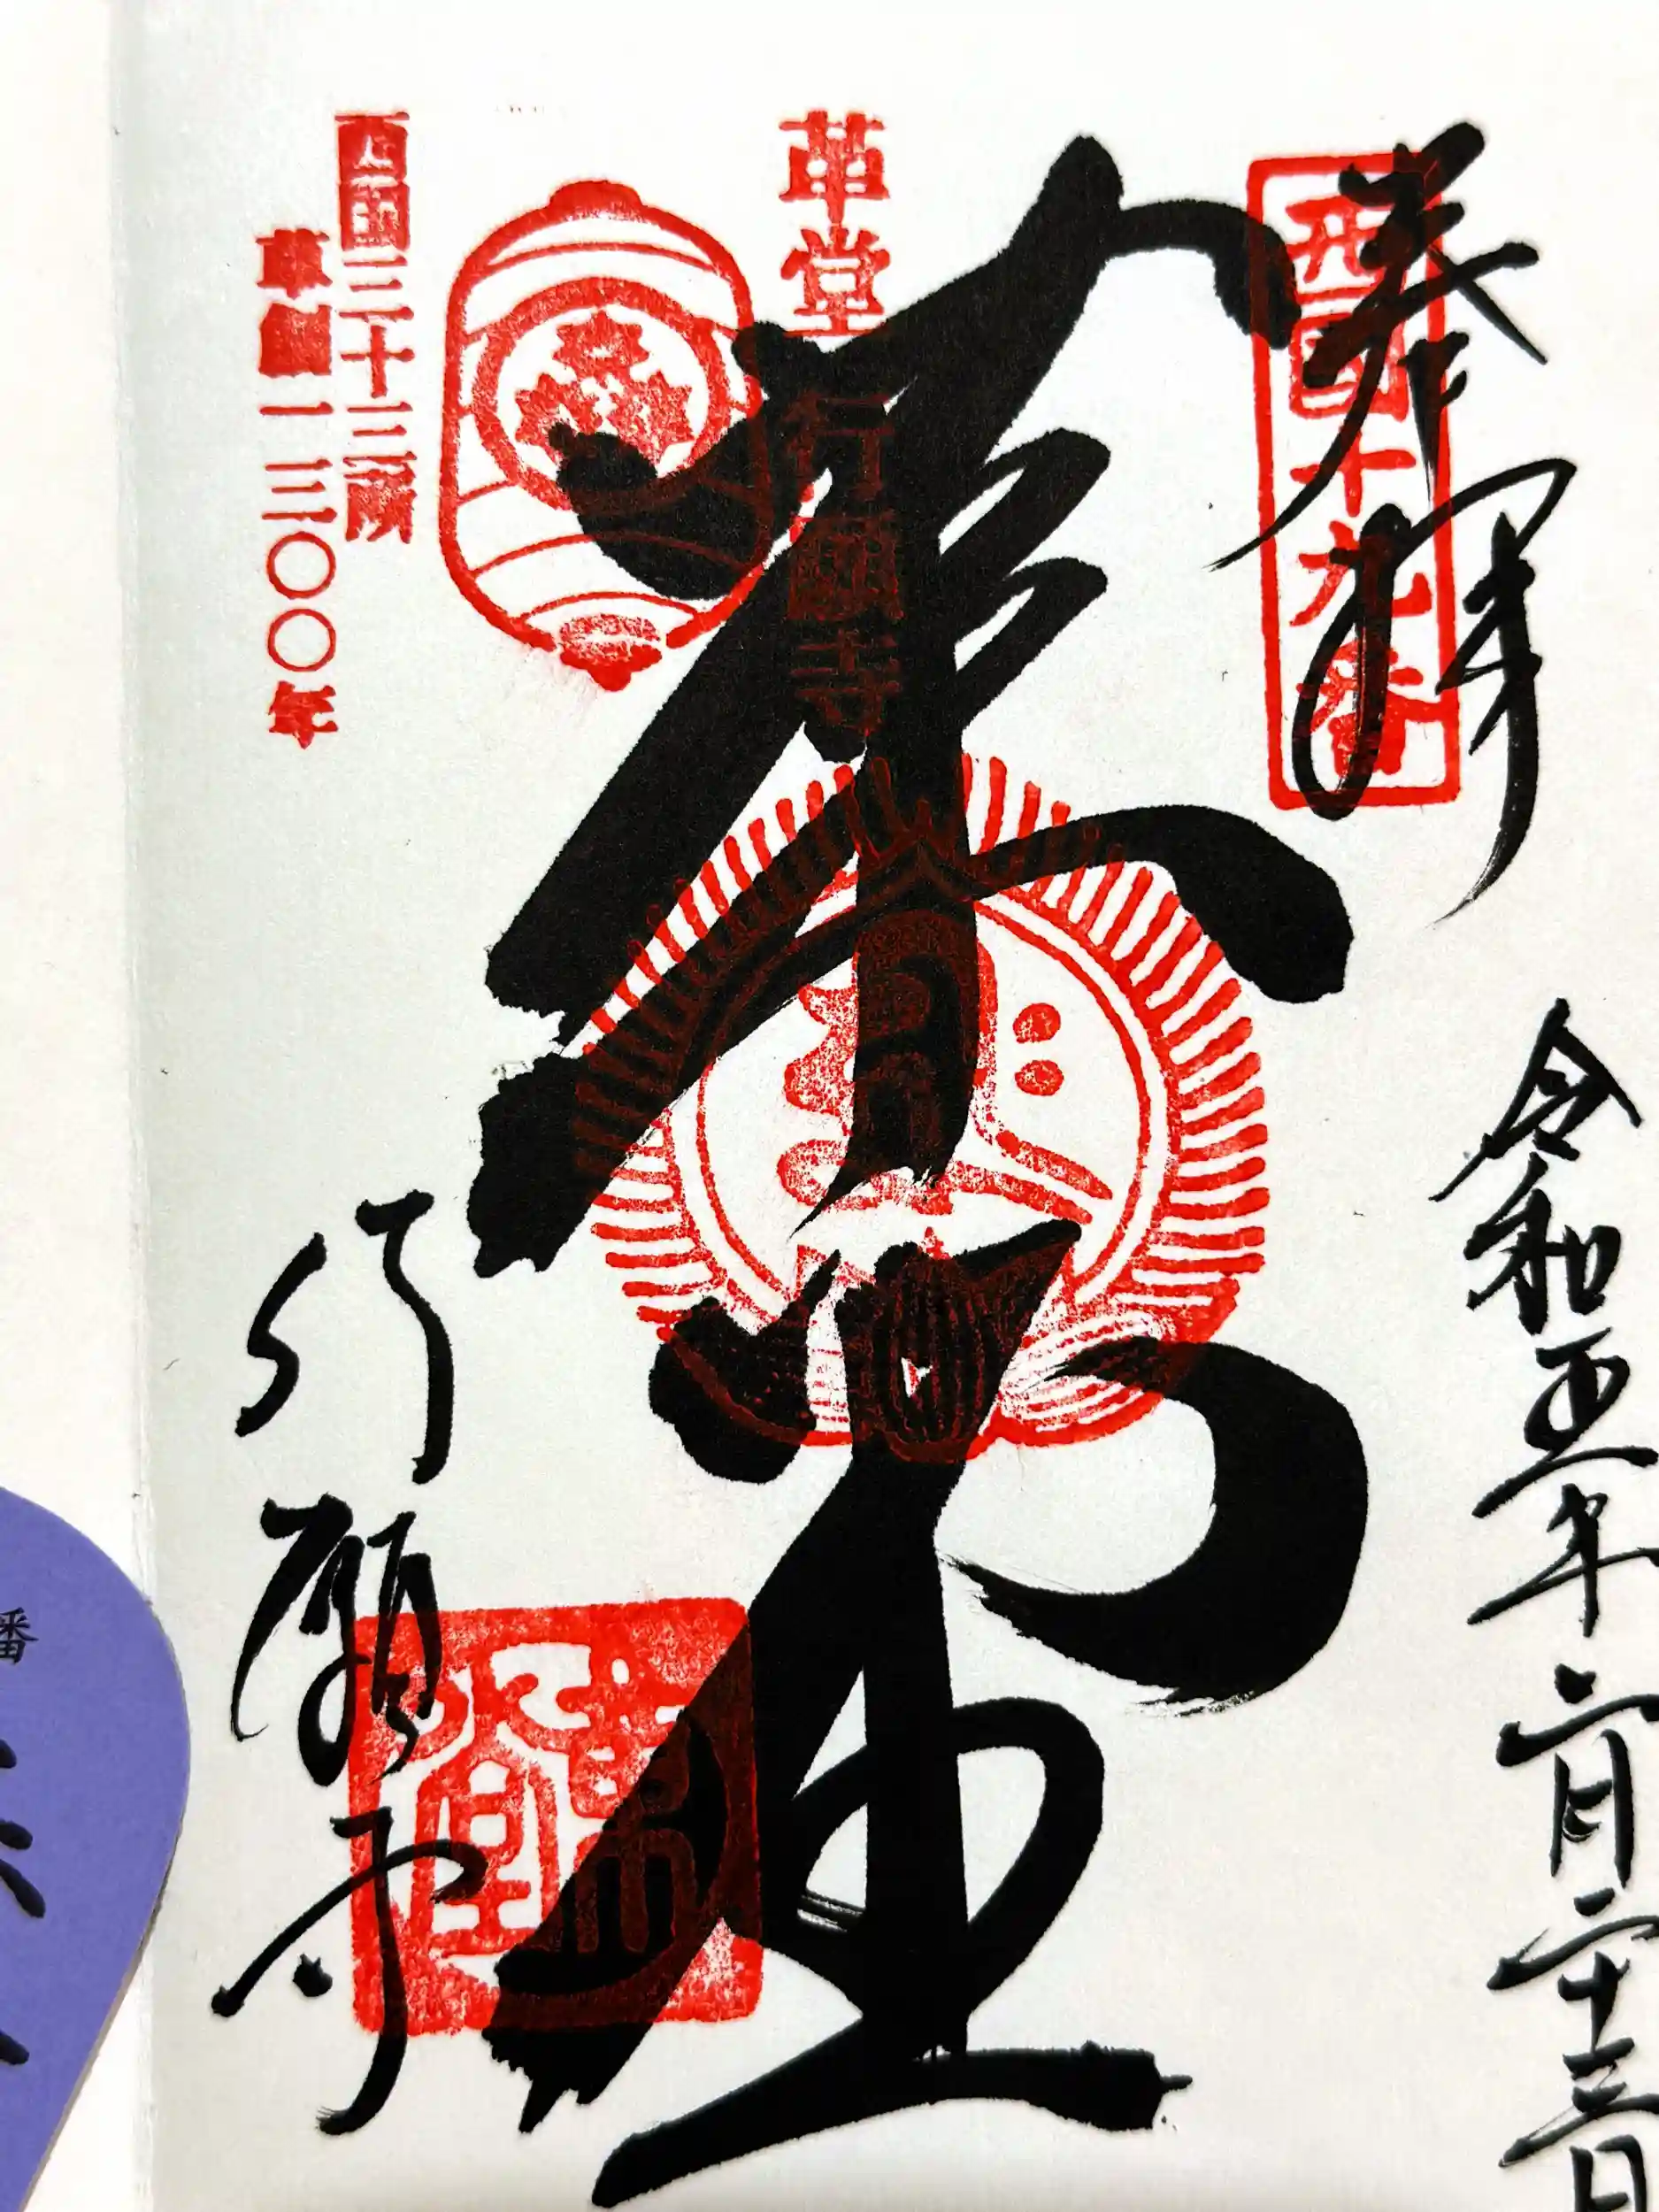 奉拝
西国十九番
令和五年六月二十三日
革堂
行願寺
革堂
行願寺
西国三十三所
草創一三〇〇年
番